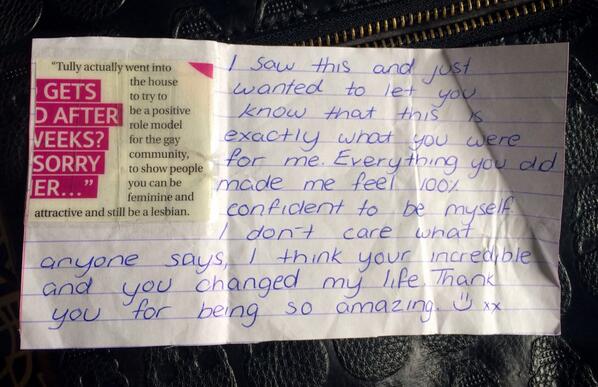 "Tully actually went into
the house
to try to
be a positive
role model
for the gay
community,
to show people
you can be
feminine and
attractive and still be a lesbian.
GETS
D AFTER
WEEKS?
SORRY
ER..."
I saw this and just
wanted to let you
know that this is
exactly what you were
for me. Everything you did
made me feel 100%
confident to be myself
I don't care what
anyone says, I think your incredible
and you changed my life. Thank
you for being so amazing. xx